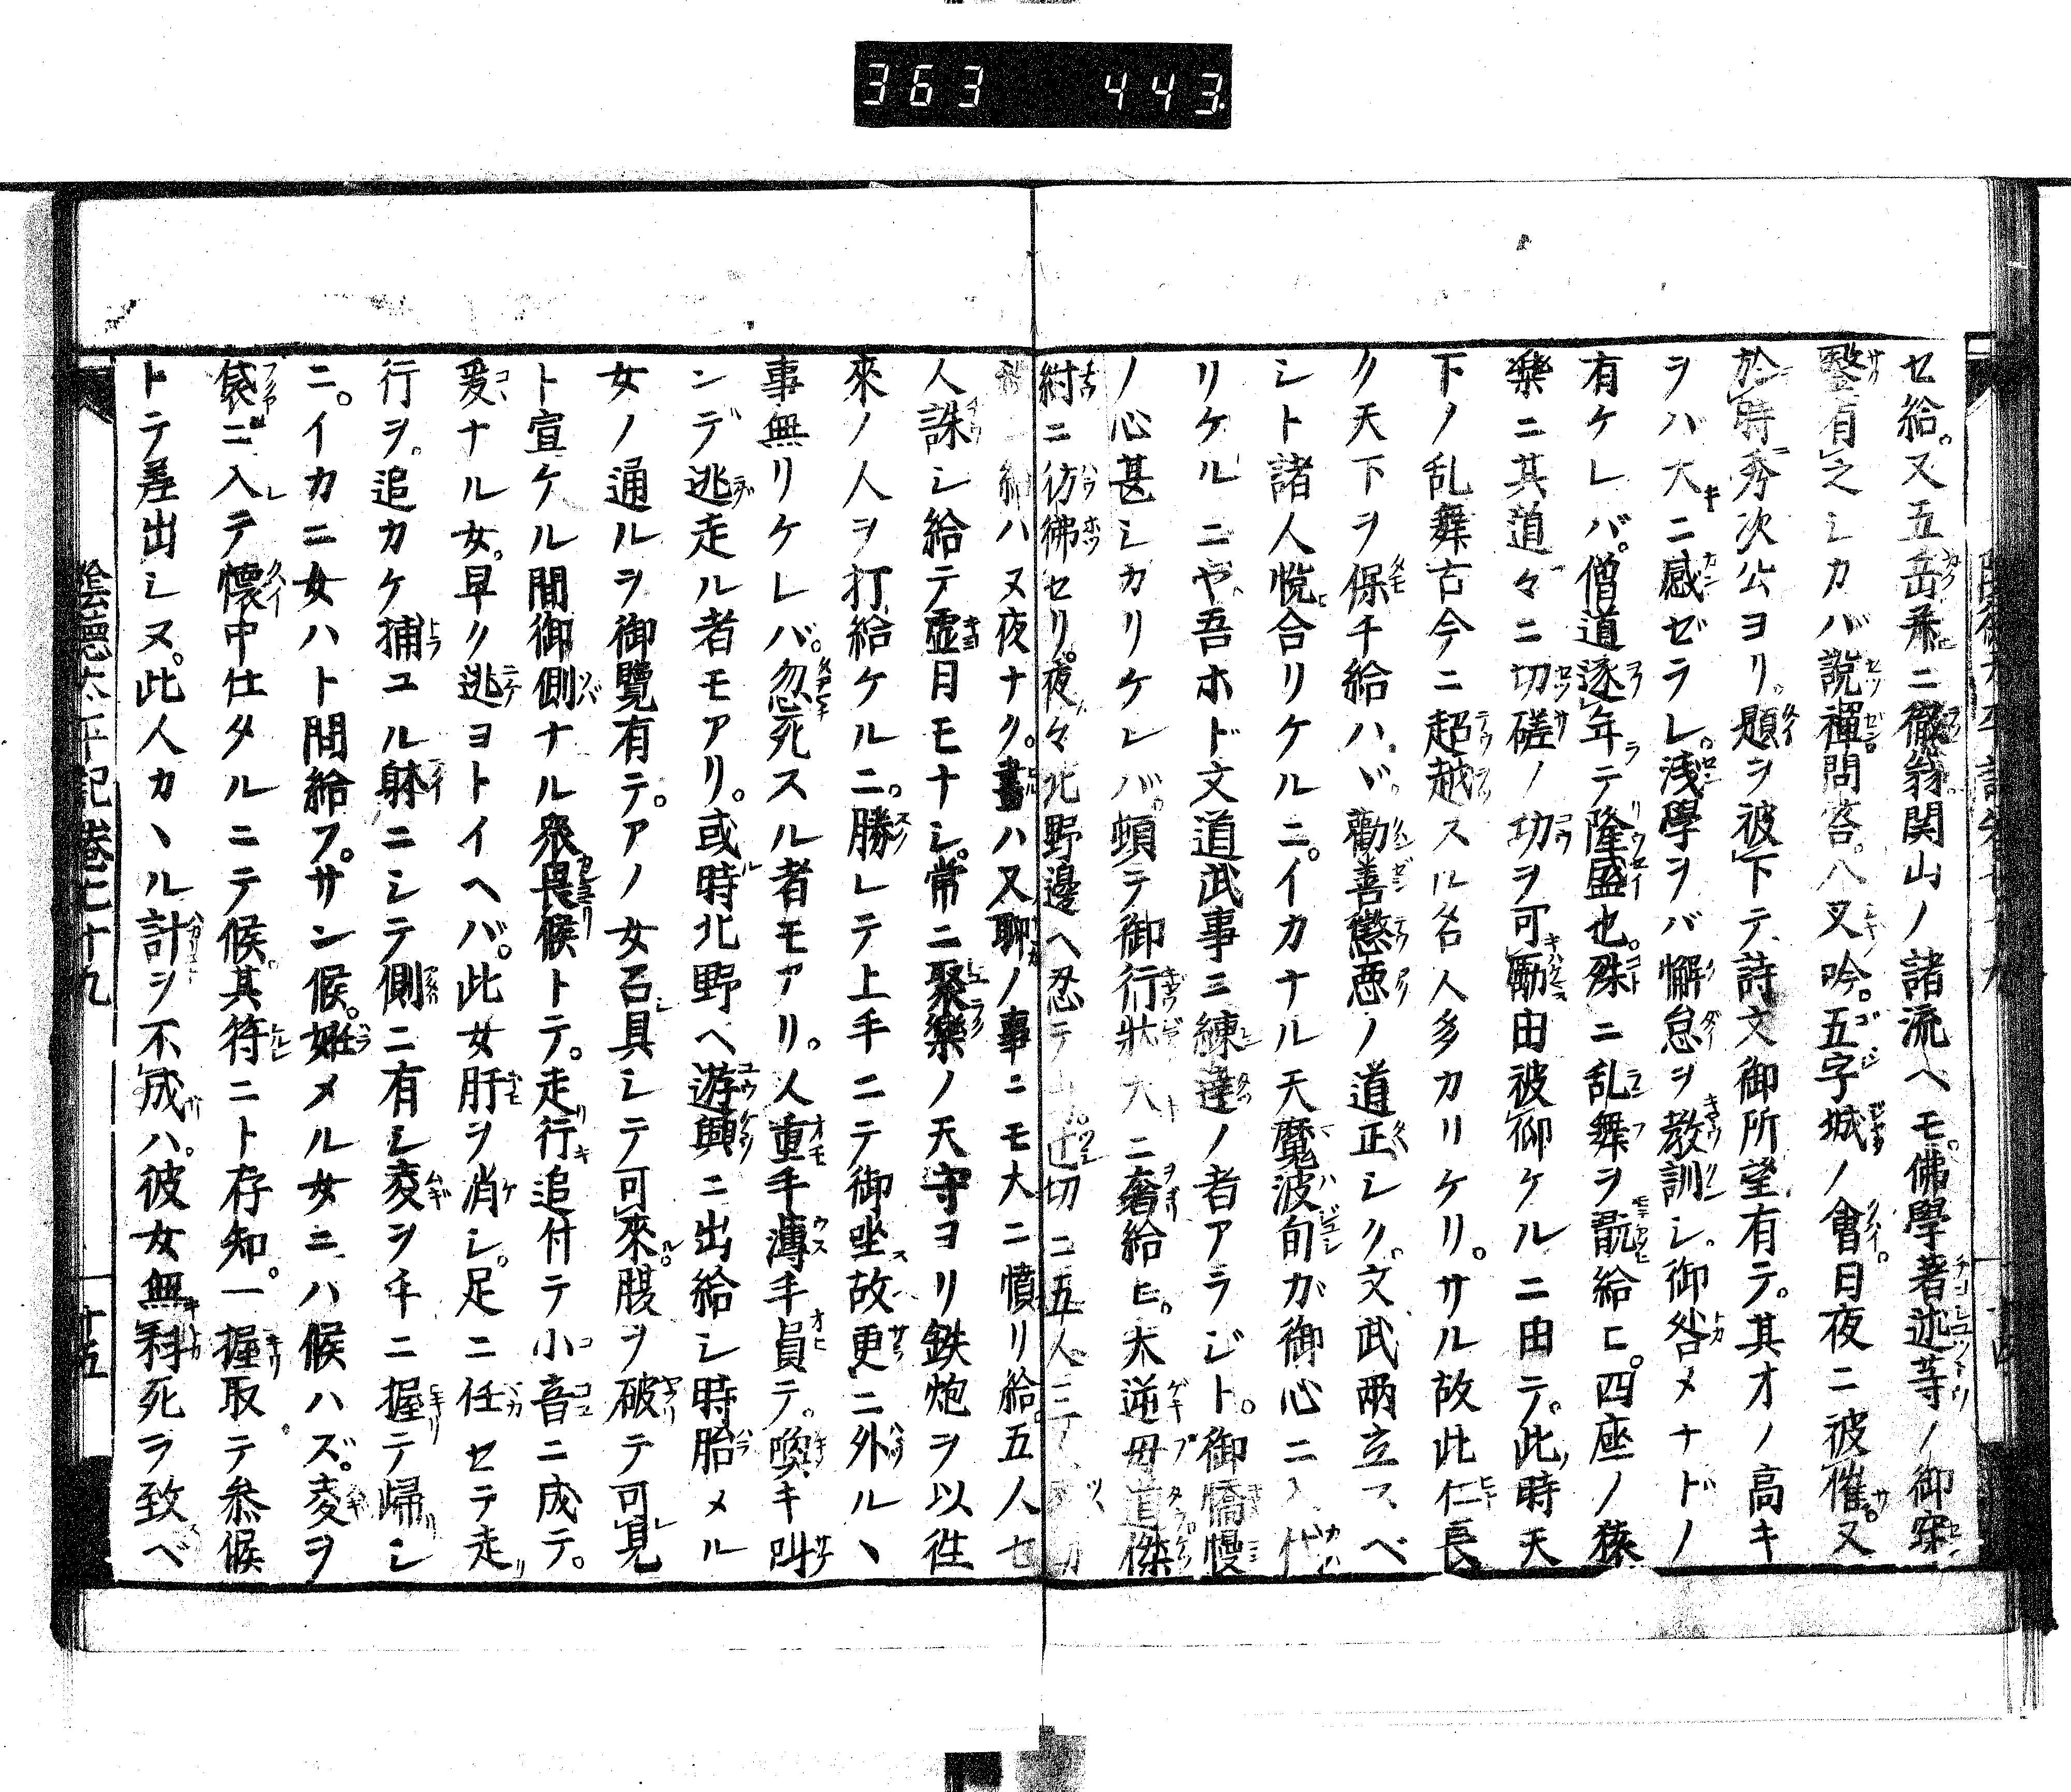 363 443
セ給。又五岳并ニ徹翁関山ノ諸流ヘモ。佛學著述等ノ御穿
鑿有之シカバ説禪問答。八叉吟。五字城ノ會。日夜ニ被催。又
於時秀次公ヨリ。題ヲ被下テ、詩文御所望有テ。其才ノ高キ
ヲバ大ニ感ゼラレ。浅學ヲバ懈怠ヲ教訓シ。御咎メナドノ
有ケレバ。僧道逐年テ隆盛也。殊ニ乱舞ヲ翫給ヒ。四座ノ猿
樂ニ其道々ニ切磋ノ功ヲ可勵由被仰ケルニ由テ。此時天
下ノ乱舞古今ニ超越スル名人多カリケリ。サル故此仁長
ク天下ヲ保チ給ハヾ。勸善懲悪ノ道正シク。文武両立スベ
シト諸人悦合リケルニ。イカナル天魔波旬ガ御心ニ入代
リケルニヤ吾ホド文道武事ニ練達ノ者アラジト。御憍慢
ノ心甚シカリケレバ。頓テ御行状大ニ奢給ヒ。大逆毋道桀
紂ニ彷彿セリ。夜々北野邊ヘ忍テ 切ニ五人三人
ハヌ夜ナク。晝ハ又聊ノ事ニモ大ニ憤リ給。五人七
人誅シ給テ虚月モナシ。常ニ聚樂ノ天守ヨリ鉄炮ヲ以往
來ノ人ヲ打給ケルニ。勝レテ上手ニテ御坐故更ニ外ルヽ
事無リケレバ。忽死スル者モアリ。又重手薄手負テ。喚キ叫
ンデ逃走ル者モアリ。或時北野ヘ遊興ニ出給シ時胎メル
女ノ通ルヲ御覽有テ。アノ女召具シテ可來。腹ヲ破テ可見
ト宣ケル間御側ナル衆畏候トテ。走行追付テ小音ニ成テ。
爰ナル女。早ク逃ヨトイヘバ。此女肝ヲ消シ。足ニ任セテ走
行ヲ。追カケ捕ユル躰ニシテ側ニ有シ麦ヲ手ニ握テ帰シ
ニ。イカニ女ハト問給フ。サン候。妊メル女ニハ候ハズ。麦ヲ
袋ニ入テ懷中仕タルニテ候。其符ニト存知。一握取テ參候
トテ差出シヌ。此人カヽル計ヲ不成ハ。彼女無科死ヲ致ベ
陰徳太平記巻七十九
十五